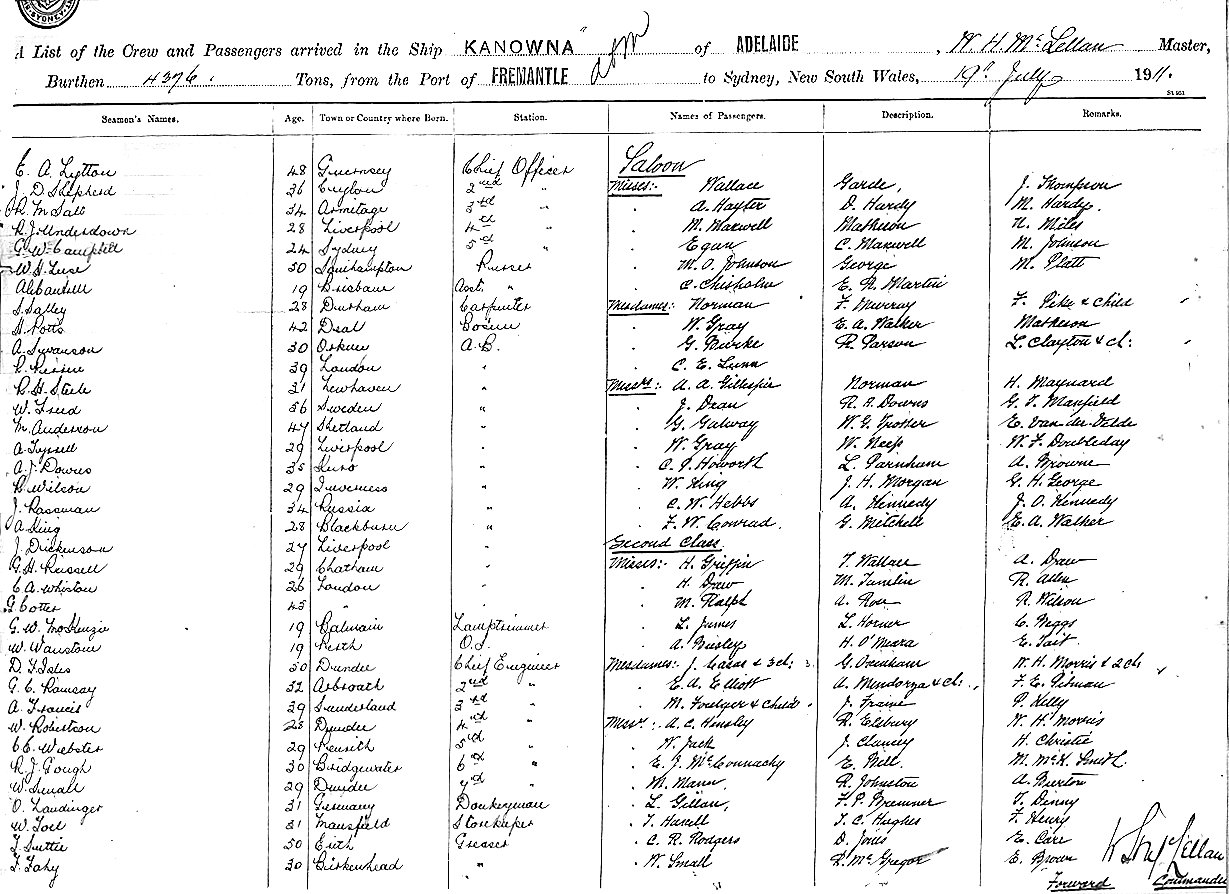 SYDNEY
A List of the Crew and Passengers arrived in the Ship KANOWNA" of ADELAIDE, W. H. McLellan Master,
Burthen 4376. Tons, from the Port of FREMANTLE to Sydney, New South Wales, 19th July 1911.
Seamen's Names. Age. Town or Country where Born. Station. Names of Passengers. Description. Remarks.
Saloon
E. A. Lytton 48 Guernsey Chief Officer
J. D. Shepherd 36 Ceylon 2nd " Misses:- Wallace Garde, J. Thompson
34 Armitage 3rd " A. Hayter D. Hardy M. Hardy.
R. J. Underdown 28 Liverpool 4th " M. Maxwell Matheson N. Miles
G. W. Campbell 24 Sydney 5th " Egan C. Maxwell M. Johnson
30 Southampton Purser M. O. Johnson George M. Platt
19 Brisbane Asst. " C. Chisholm E. R. Martin
28 Durham Carpenter Mesdames: Norman F. Murray F. Pike & Child
H. Potts 42 Deal Bosun W. Gray E. A. Walker Matheson
A. Swanson 30 Orkney A. B. G. Burke R. Parson L. Clayton & ch:
39 London " C. E. Lunn
R. H. Steele 31 Newhaven " Messrs: A. A. Gillespie Norman H. Maynard
W. Freed 36 Sweden " J. Dean R. A. Downs G. V. Manfield
M. Anderson 47 Shetland " G. Galway W. G. Trotter E. Van der Velde
A. Tyrrell 29 Liverpool " W. Gray W. Neep W. F. Doubleday
A. J. Downs 35 " C. P. Howorth L. Parnham A. Browne
R. Wilson 29 Inverness " W. King J. H. Morgan G. H. George
J. Rassman 34 Russia " C. W. Hebbs A. Kennedy J. O. Kennedy
A. King 28 Blackburn " F. W. Conrad. G. Mitchell E. A. Walker
J. Dickenson 27 Liverpool " Second Class
G. H. Russell 29 Chatham " Misses:- H. Griffin T. Wallace A. Draw
C. A. Whiston 26 London " H. Draw M. Tamlin R. Allen
G. Cotter 45 " " M. Ralph A. Rose R. Wilson
G. W. McKenzie 19 Balmain Lamptrimmer L. James L. Horner C. Biggs
W. Wanstone 19 Perth O.S. A. Bisley H. O'Meara E. Tait
D. F. Isles 50 Dundee Chief Engineer Mesdames: J. Casas & 3 ch: G. Oxenham W. H. Morris & 2 ch
G. C. Ramsay 32 Arbroath 2nd " E. A. Elliott A. Mendorza & ch: F. E. Pitman
A. Francis 39 Sunderland 3rd " M. Foulger & Child J. Fraine P. Kelly
W. Robertson 28 Dundee 4th " Messrs: A. C. Hensley R. Elsbury W. H. Morris
C. E. Webster 29 Penrith 5th " W. Jack J. Clancy H. Christie
R. J. Gough 30 Bridgewater 6th " E. J. McConnachy E. Bell. M. McK. Smith
W. Small 29 Dundee 7th " M. Mann. R. Johnston A. Burton
O. Landinger 31 Germany Donkeyman L. Gillan, F. P. Bremner T. Denny
W. Toel 31 Mansfield Storekeeper T. Hasell T. C. Hughes F. Henry
J. Suttie 50 Erith Greaser C. R. Rodgers D. Jones E. Care
T. Fahy 30 Birkenhead " W. Small R. McGregor E. Brown
W. H. McLellan
Forward Commander